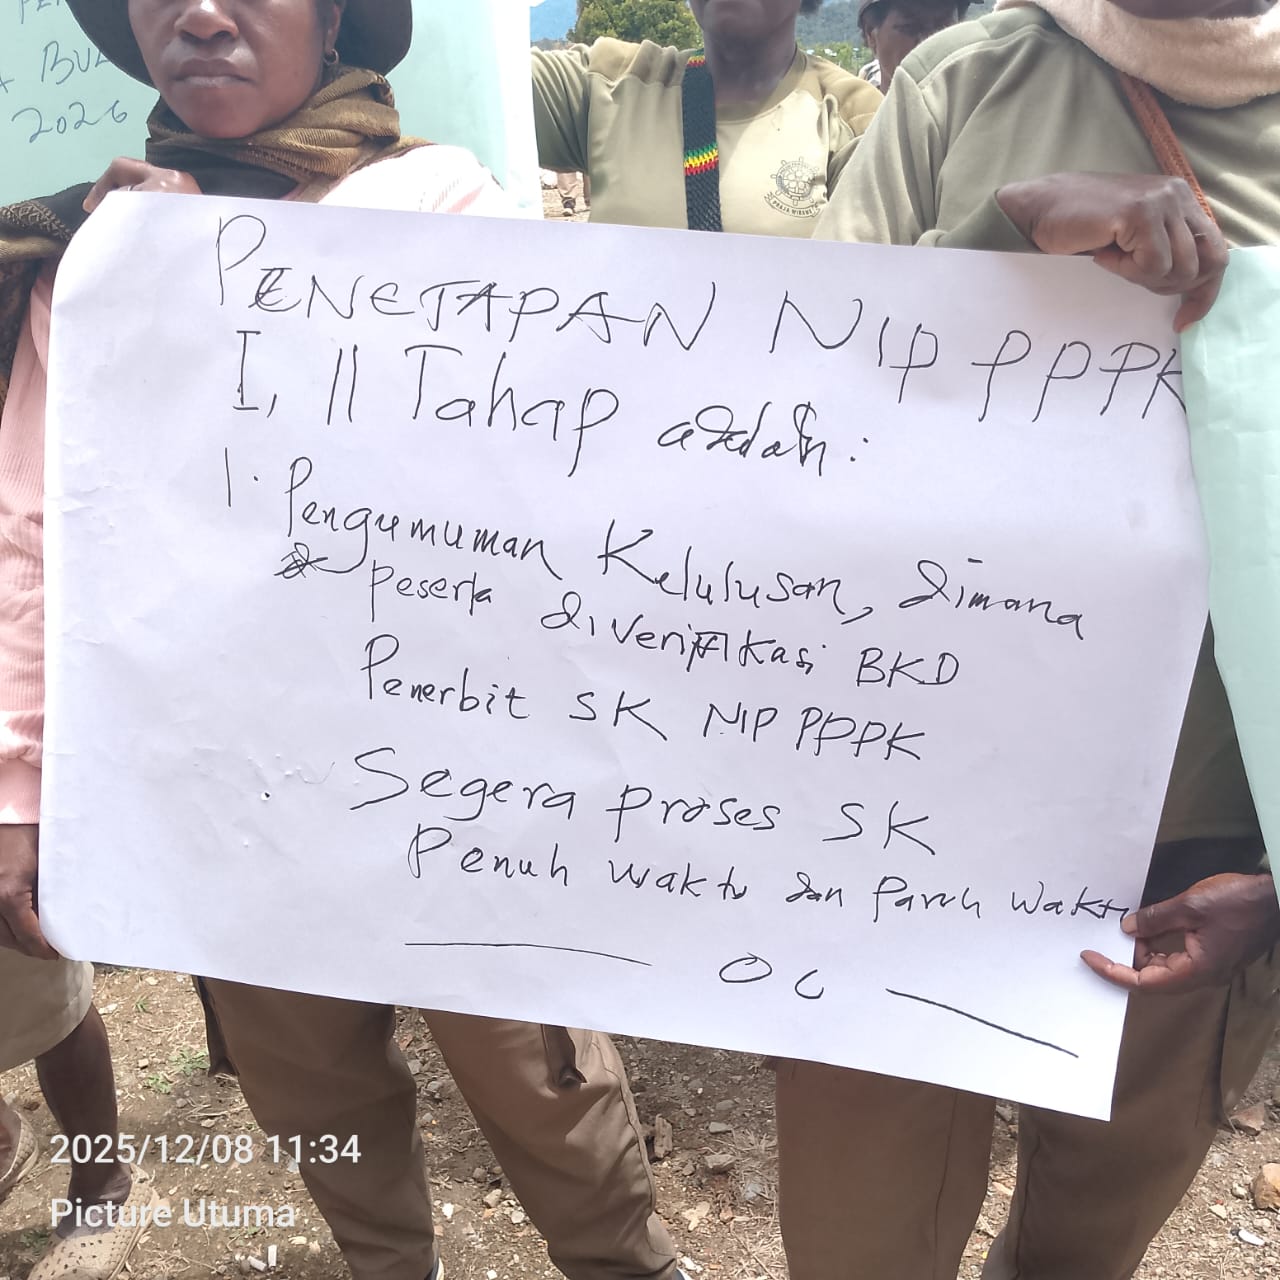 BUL
2026
PRAJA WIBAWA
PENETAPAN NIP PPPK
I, II Tahap adalah:
1. Pengumuman Kelulusan, dimana
peserta diverifikasi BKD
Penerbit SK NIP PPPK
Segera proses SK
Penuh waktu dan Paruh waktu
2025/12/08 11:34
Picture Utuma